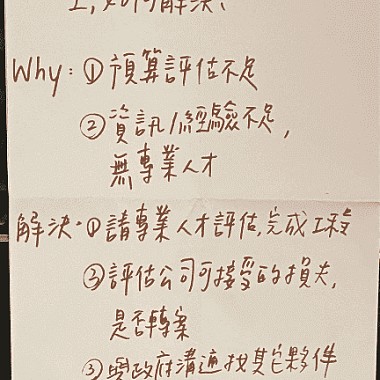 工,如何解決?
Why: ① 預算評估不足
② 資訊/經驗不足,
無專業人才
解決: ① 請專業人才評估,完成工程
② 評估公司可接受的損失,
是否轉案
③ 與政府溝通找其它夥伴